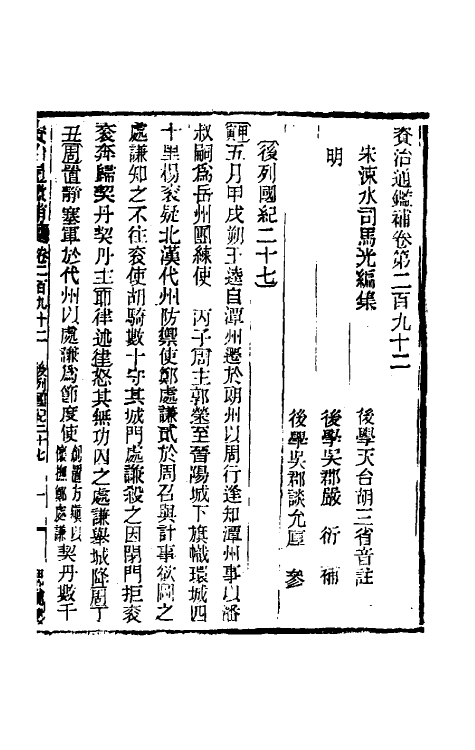 資治通鑑補卷第二百九十二
宋涑水司馬光編集
後學天台胡三省音註
明
後學吳郡嚴衍補
後學吳郡談允厚參
後列國紀二十七
甲寅五月甲戌朔王逵自潭州遷於朗州以周行逢知潭州事以潘
叔嗣爲岳州團練使　丙子周主郭榮至晉陽城下旗幟環城四
十里楊衮疑北漢代州防禦使鄭處謙貳於周召與計事欲圖之
處謙知之不往衮使胡騎數十守其城門處謙殺之因閉門拒衮
衮奔歸契丹契丹主耶律述律怒其無功囚之處謙舉城降周丁
丑周置靜塞軍於代州以處謙爲節度使創置方鎮以懷撫鄭處謙契丹數千
資治通鑑補 卷二百九十二 後列國紀二十七 一